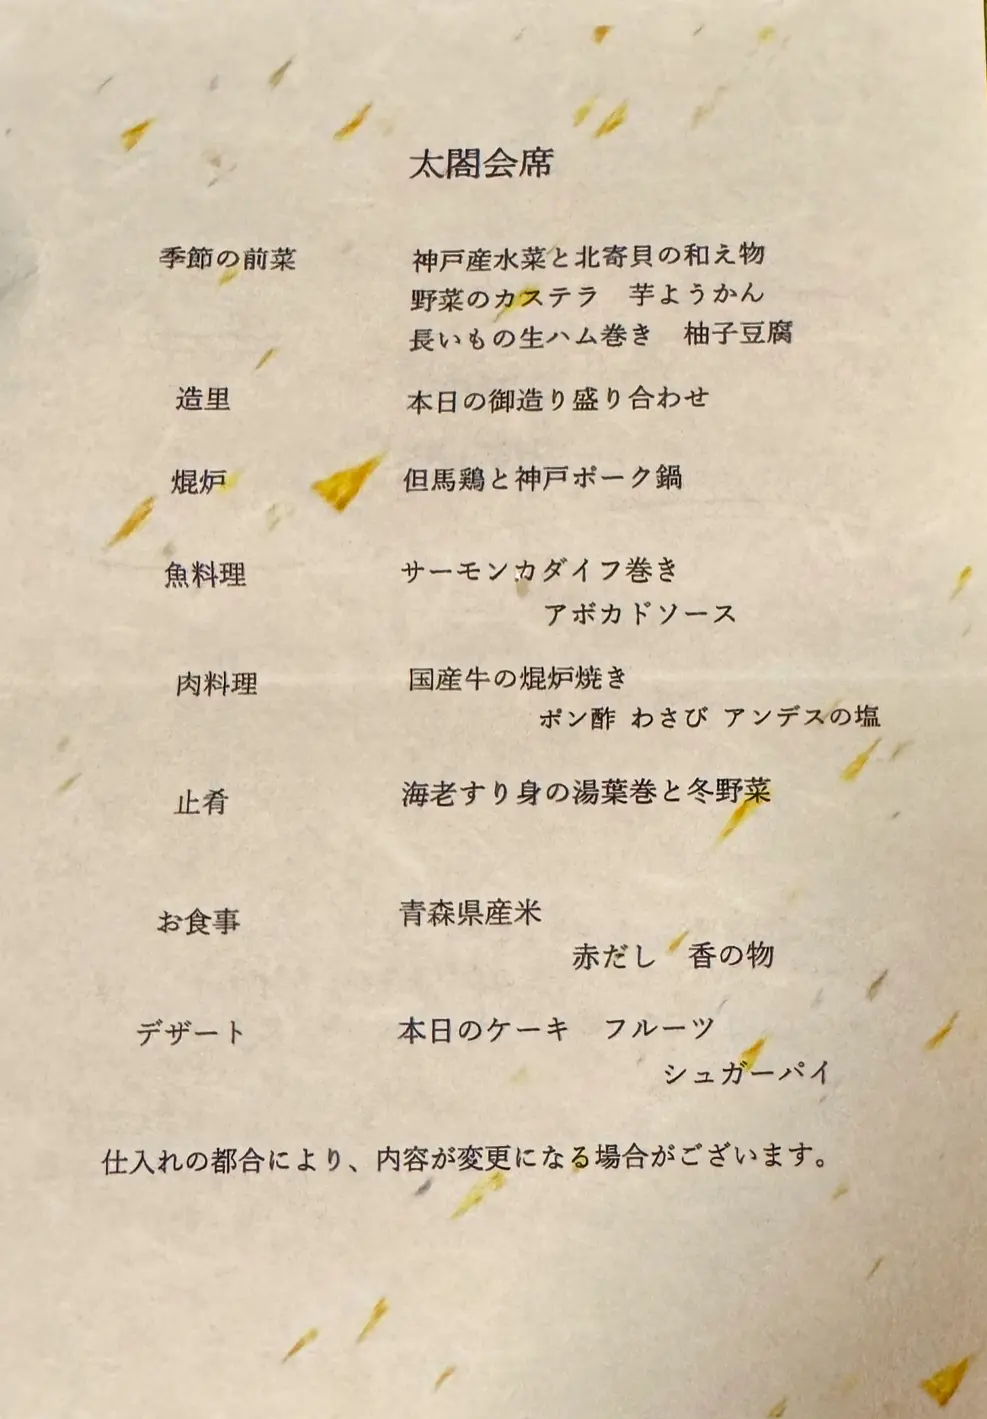 太閤会席
季節の前菜　神戸産水菜と北寄貝の和え物
野菜のカステラ　芋ようかん
長いもの生ハム巻き　柚子豆腐
造里　本日の御造り盛り合わせ
焜炉　但馬鶏と神戸ポーク鍋
魚料理　サーモンカダイフ巻き
アボカドソース
肉料理　国産牛の焜炉焼き
ポン酢 わさび アンデスの塩
止肴　海老すり身の湯葉巻と冬野菜
お食事　青森県産米
赤だし　香の物
デザート　本日のケーキ　フルーツ
シュガーパイ
仕入れの都合により、内容が変更になる場合がございます。